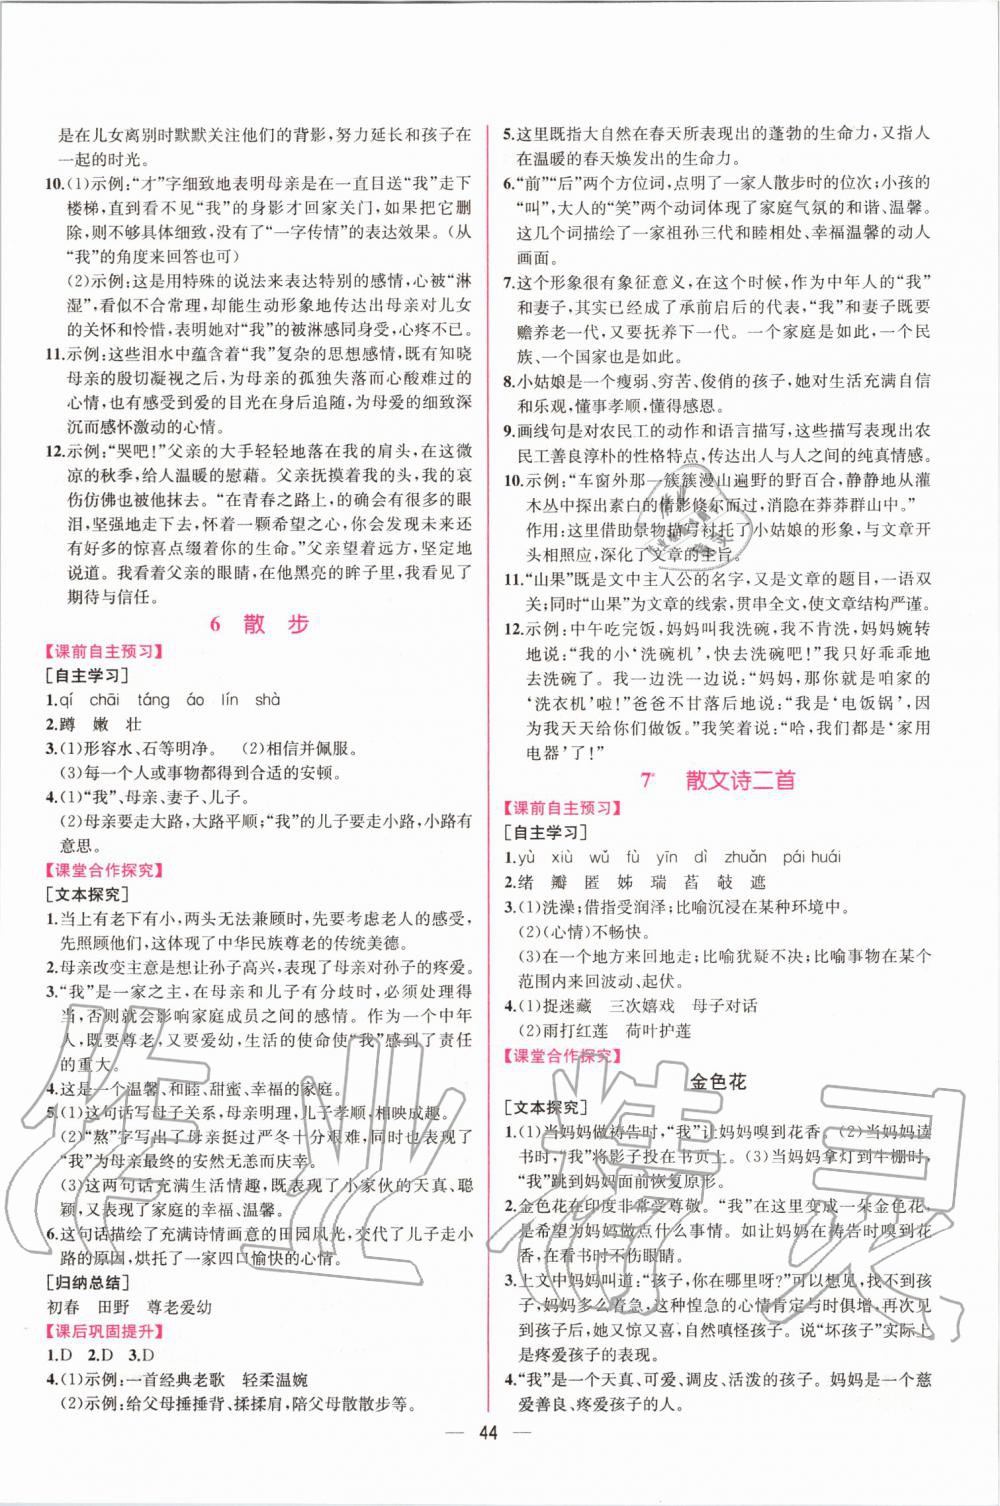 是在儿女离别时默默关注他们的背影,努力延长和孩子在
一起的时光。
10.(1)示例:“才”字细致地表明母亲是在一直目送“我”走下
楼梯,直到看不见“我”的身影才回家关门,如果把它删
除,则不够具体细致,没有了“一字传情”的表达效果。(从
“我”的角度来回答也可)
(2)示例:这是用特殊的说法来表达特别的感情,心被“淋
湿”,看似不合常理,却能生动形象地传达出母亲对儿女
的关怀和怜惜,表明她对“我”的被淋感同身受,心疼不已。
11.示例:这些泪水中蕴含着“我”复杂的思想感情,既有知晓
母亲的殷切凝视之后,为母亲的孤独失落而心酸难过的
心情,也有感受到爱的目光在身后追随,为母爱的细致深
沉而感怀激动的心情。
12.示例:“哭吧!”父亲的大手轻轻地落在我的肩头,在这微
凉的秋季,给人温暖的慰藉。父亲抚摸着我的头,我的哀
伤仿佛也被他抹去。“在青春之路上,的确会有很多的眼
泪,坚强地走下去,怀着一颗希望之心,你会发现未来还
有好多的惊喜点缀着你的生命。”父亲望着远方,坚定地
说道。我看着父亲的眼睛,在他黑亮的眸子里,我看见了
期待与信任。
6 散 步
【课前自主预习】
[自主学习]
1.qí chāi táng áo lín shà
2.蹲 嫩 壮
3.(1)形容水、石等明净。 (2)相信并佩服。
(3)每一个人或事物都得到合适的安顿。
4.(1)“我”、母亲、妻子、儿子。
(2)母亲要走大路,大路平顺;“我”的儿子要走小路,小路有
意思。
【课堂合作探究】
[文本探究]
1.当上有老下有小,两头无法兼顾时,要先考虑老人的感受,
先照顾他们,这体现了中华民族尊老的传统美德。
2.母亲改变主意是想让孙子高兴,表现了母亲对孙子的疼爱。
3.“我”是一家之主,在母亲和儿子有分歧时,必须处理得
当,否则就会影响家庭成员之间的感情。作为一个中年
人,既要尊老,又要爱幼,生活的使命使“我”感到了责任
的重大。
4.这是一个温馨、和睦、甜蜜、幸福的家庭。
5.(1)这句话写母子关系,母亲明理,儿子孝顺,相映成趣。
(2)“熬”字写出了母亲挺过严冬十分艰难,同时也表现了
“我”为母亲最终的安然无恙而庆幸。
(3)这两句话充满生活情趣,既表现了小家伙的天真、聪
颖,又表现了家庭的幸福、温馨。
6.这句话描绘了充满诗情画意的田园风光,交代了儿子走小
路的原因,烘托了一家四口愉快的心情。
[归纳总结]
初春 田野 尊老爱幼
【课后巩固提升】
1.D 2.D 3.D
4.(1)示例:一首经典老歌 轻柔温婉
(2)示例:给父母捶捶背、揉揉肩,陪父母散散步等。
5.这里既指大自然在春天所表现出的蓬勃的生命力,又指人
在温暖的春天焕发出的生命力。
6.“前”“后”两个方位词,点明了一家人散步时的位次;小孩的
“叫”,大人的“笑”两个动词体现了家庭气氛的和谐、温馨。
这几个词描绘了一家祖孙三代和睦相处、幸福温馨的动人
画面。
7.这个形象很有象征意义,在这个时候,作为中年人的“我”
和妻子,其实已经成了承前启后的代表,“我”和妻子既要
赡养老一代,又要抚养下一代。一个家庭是如此,一个民
族、一个国家也是如此。
8.小姑娘是一个瘦弱、穷苦、俊俏的孩子,她对生活充满自信
和乐观,懂事孝顺,懂得感恩。
9.画线句是对农民工的动作和语言描写,这些描写表现出农
民工善良淳朴的性格特点,传达出人与人之间的纯真情感。
10.示例:“车窗外那一簇簇漫山遍野的野百合,静静地从灌
木丛中探出素白的倩影倏尔而过,消隐在莽莽群山中。”
作用:这里借助景物描写衬托了小姑娘的形象,与文章开
头相照应,深化了文章的主旨。
11.“山果”既是文中主人公的名字,又是文章的题目,一语双
关;同时“山果”为文章的线索,贯串全文,使文章结构严谨。
12.示例:中午吃完饭,妈妈叫我洗碗,我不肯洗,妈妈婉转
地说:“我的小‘洗碗机’,快去洗碗吧!”我只好乖乖地
去洗碗了。我一边洗一边说:“妈妈,你就是咱家的
‘洗衣机’啦!”爸爸不甘落后地说:“我是‘电饭锅’,因
为我天天给你们做饭。”我笑着说:“哈,我们都是‘家用
电器’了!”
7* 散文诗二首
【课前自主预习】
[自主学习]
1.yù xiù wǔ fù yīn dì zhuǎn pái huái
2.绪 瓣 匿 姊 瑞 菡 攲 遮
3.(1)洗澡;借指受润泽;比喻沉浸在某种环境中。
(2)(心情)不畅快。
(3)在一个地方来回地走;比喻犹疑不决;比喻事物在某个
范围内来回波动、起伏。
4.(1)捉迷藏 三次嬉戏 母子对话
(2)雨打红莲 荷叶护莲
【课堂合作探究】
金色花
[文本探究]
1.(1)当妈妈做祷告时,“我”让妈妈嗅到花香。(2)当妈妈读
书时,“我”将影子投在书页上。(3)当妈妈拿灯到牛棚时,
“我”跳到妈妈面前恢复原形。
2.金色花在印度非常受尊敬。“我”在这里变成一朵金色花,
是希望为妈妈做点什么事情。如让妈妈在祷告时嗅到花
香,在看书时不伤眼睛。
3.上文中妈妈叫道:“孩子,你在哪里呀?”可以想见,找不到孩
子,妈妈多么着急,这种惶急的心情肯定与时俱增,再次见
到孩子后,她又惊又喜,自然嗔怪孩子。说“坏孩子”实际上
是疼爱孩子的表现。
4.“我”是一个天真、可爱、调皮、活泼的孩子。妈妈是一个慈
爱善良、疼爱孩子的人。
44
作业精灵